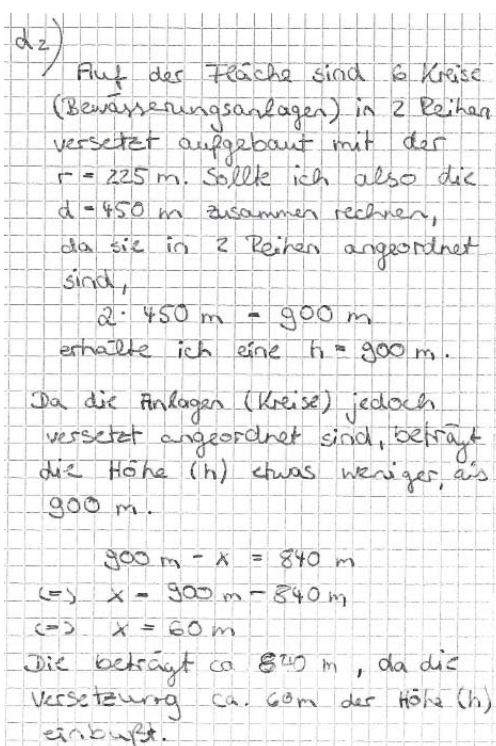 d2)
Auf der Fläche sind 6 Kreise
(Bewässerungsanlagen) in 2 Reihen
versetzt aufgebaut mit der
r = 225 m. Sollte ich also die
d = 450 m zusammen rechnen,
da sie in 2 Reihen angeordnet
sind,
2 · 450 m = 900 m
erhalte ich eine h = 900 m.
Da die Anlagen (Kreise) jedoch
versetzt angeordnet sind, beträgt
die Höhe (h) etwas weniger, als
900 m.
900 m - x = 840 m
<=> x = 900 m - 840 m
<=> x = 60 m
Die beträgt ca 840 m, da die
Versetzung ca. 60m der Höhe (h)
einbußt.